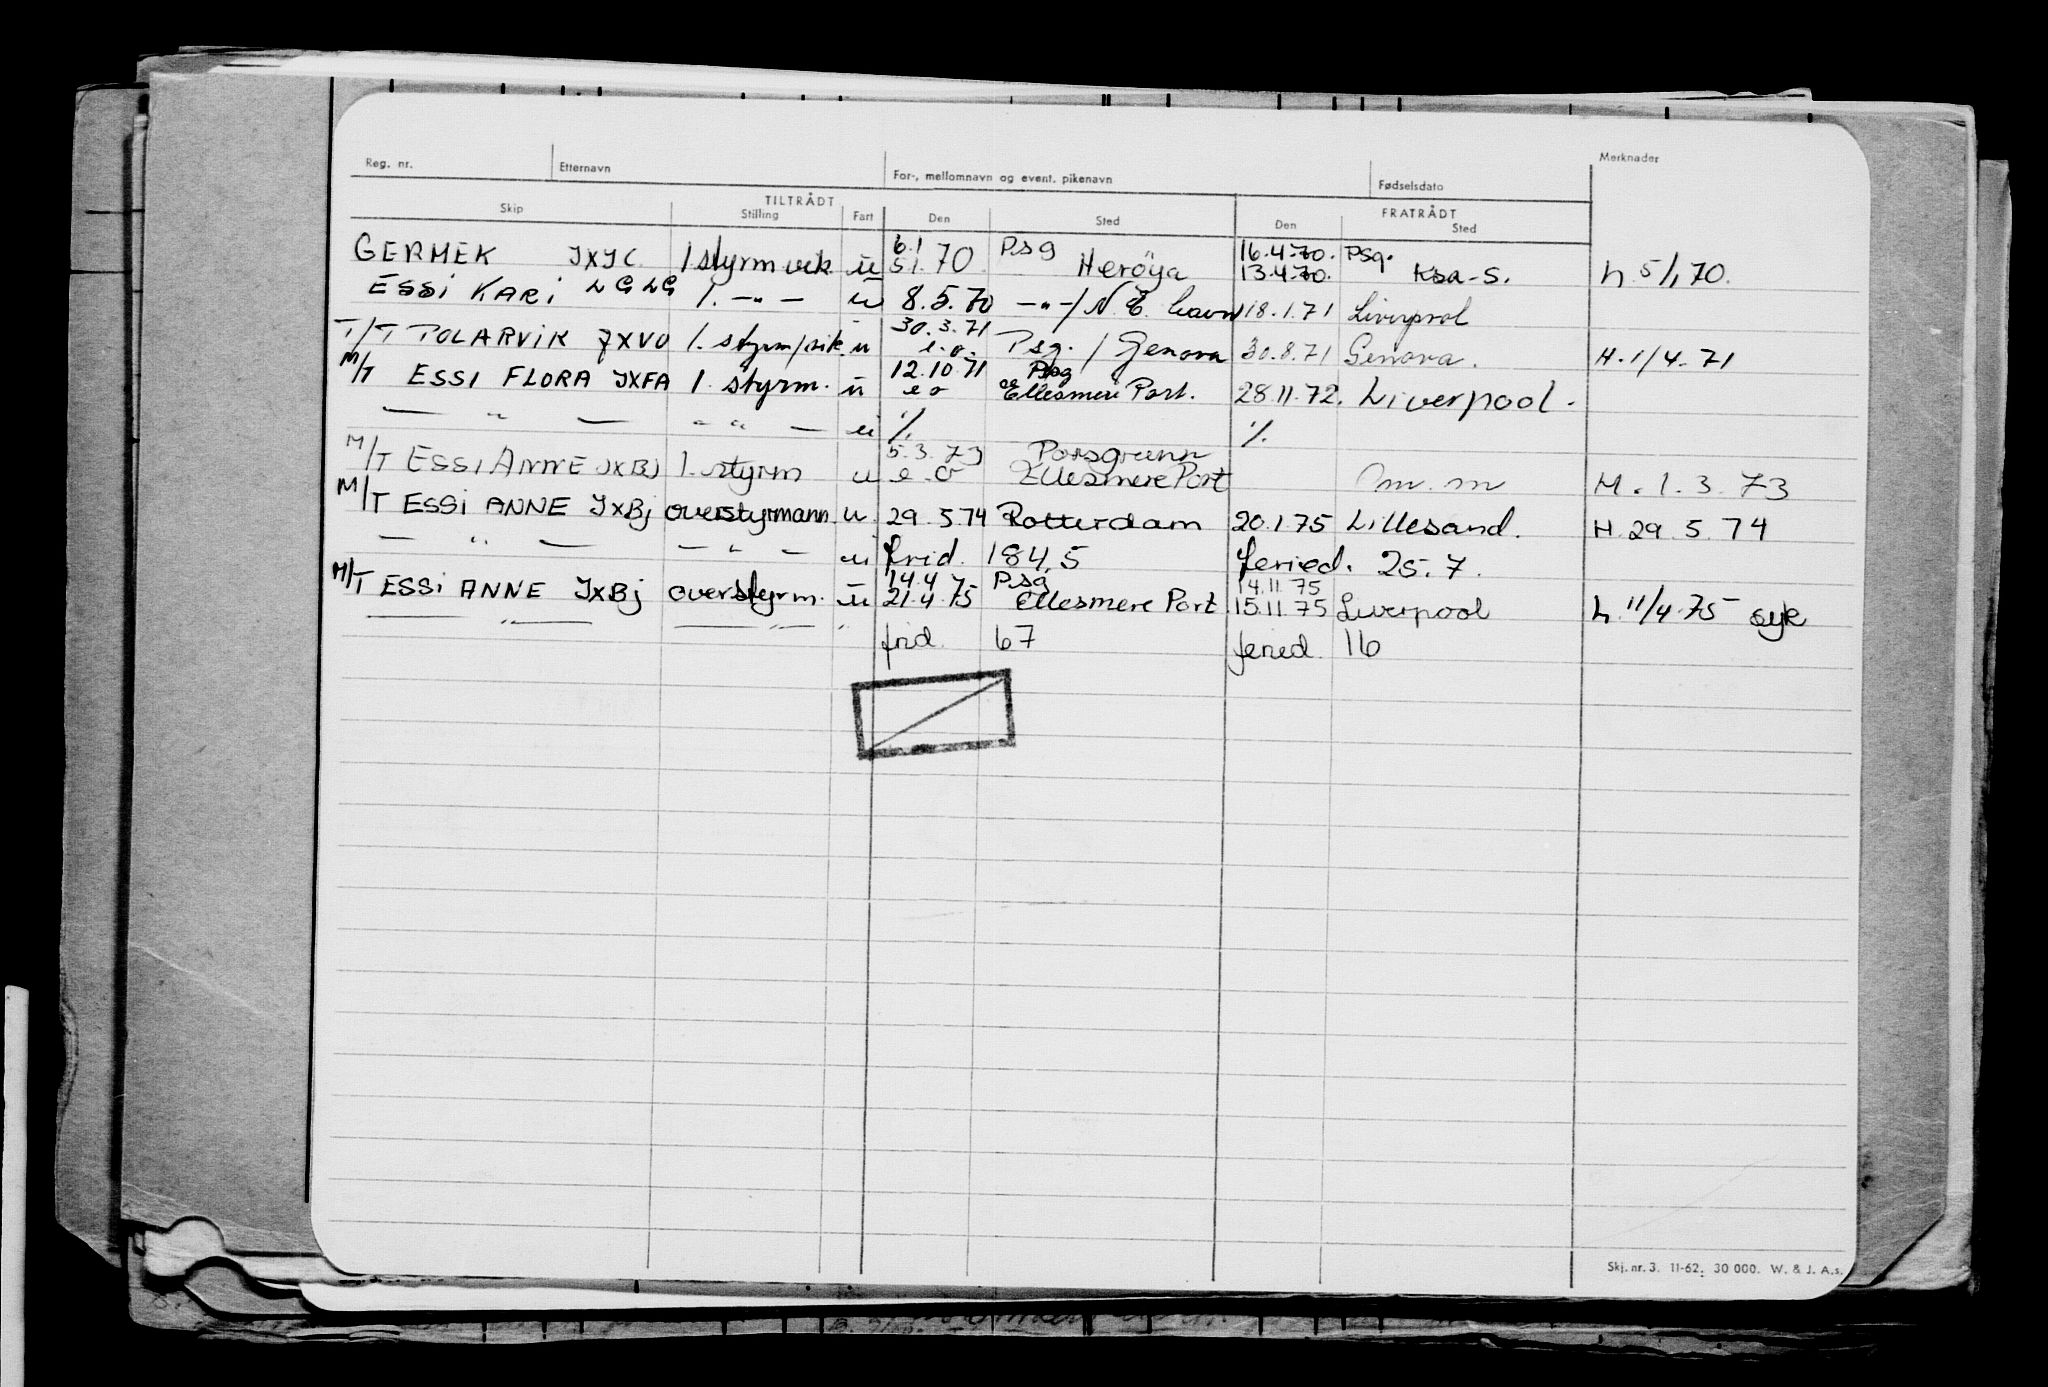 Reg. nr. Etternavn For-, mellomnavn og event. pikenavn Fødselsdato Merknader
TILTRÅDT FRATRÅDT
Skip Stilling Fart Den Sted Den Sted
6.1 Psg 16.4.70. Psg.
GERMEK JXJC 1 styrm vik. u 5.1.70 Herøya 13.4.70. Ksa-S. h. 5/1 70.
ESSi KARi LGLG 1. -"- u 8.5.70 -"-/ N. E. havn 18.1.71 Liverpool
30.3.71
T/T POLARVIK JXVO 1. styrm/vik. u e.o. Psg. / Genova 30.8.71 Genova. H. 1/4.71
12.10.71 Psg
M/T ESSI FLORA JXFA 1. styrm. u e o Ellesmere Port. 28.11.72. Liverpool.
— " — " " — u %. %.
5.3.73 Porsgrunn
M/T ESSI ANNE JXBJ 1. styrm u e.o Ellesmere Port Om. m M. 1.3.73
M/T ESSi ANNE JXBj overstyrmann u. 29.5.74 Rotterdam 20.1.75 Lillesand. H. 29.5.74
— " — — " — u frid. 184,5 feried. 25.7.
14.4.75 Psg 14.11.75
M/T ESSi ANNE JXBj overstyrm. u 21.4.75 Ellesmere Port 15.11.75 Liverpool h. 11/4.75 syk
— " — — " — " frid. 67 feried. 16
Skj. nr. 3. 11-62. 30 000. W. & J. A.s.